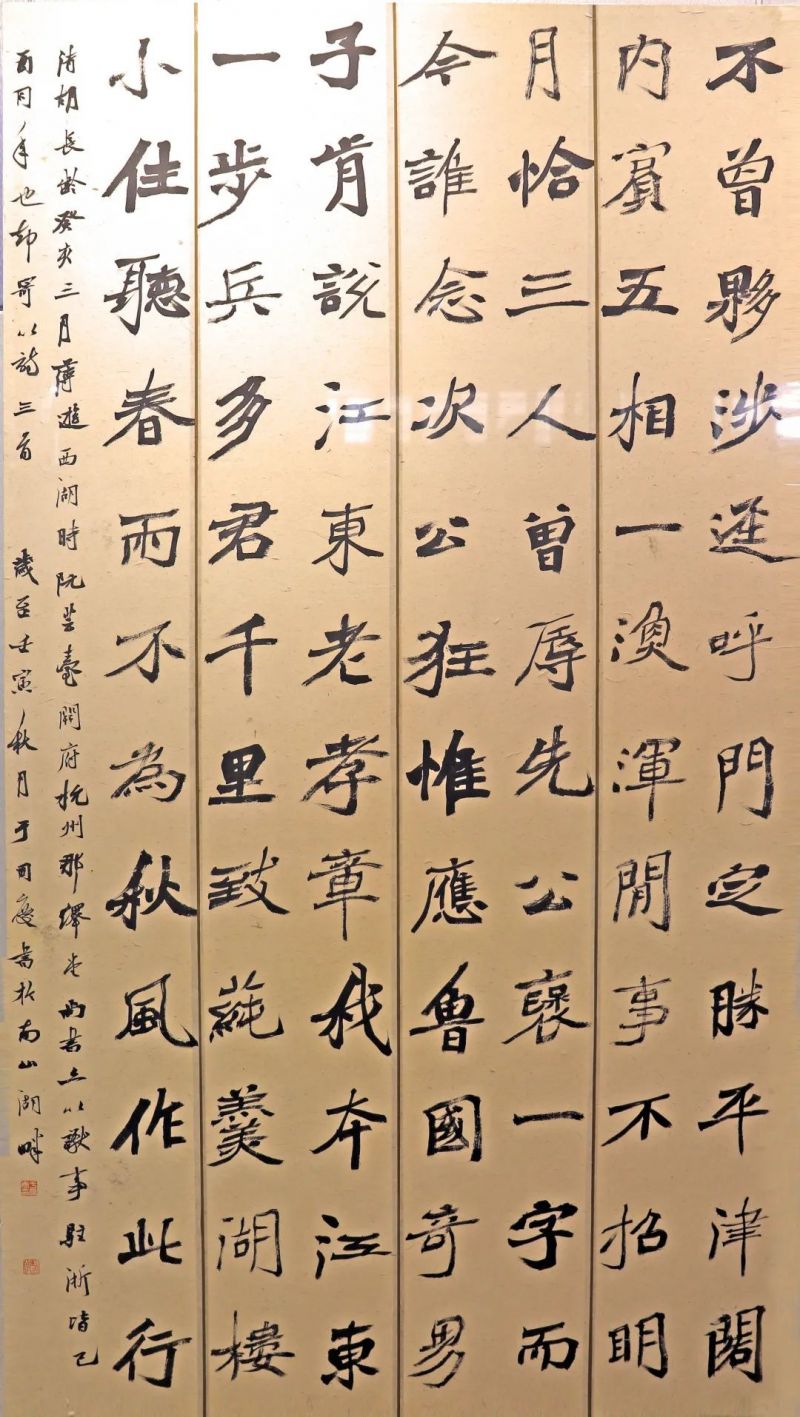 不曾夥涉呼門定勝平津閣
內賓五相一渙渾閒事不招明
月恰三人曾辱先公褒一字而
今誰念次公狂惟應魯國奇男
子肯説江東老孝章我本江東
一步兵多君千里致蒓羹湖樓
小住聽春雨不為秋風作此行
清胡長齡癸亥三月薄遊西湖時阮芸臺開府杭州那繹堂尚書亦以讞事駐浙皆己
酉同年也却寄以詩三首 歲至壬寅秋月于同慶書於南山湖畔